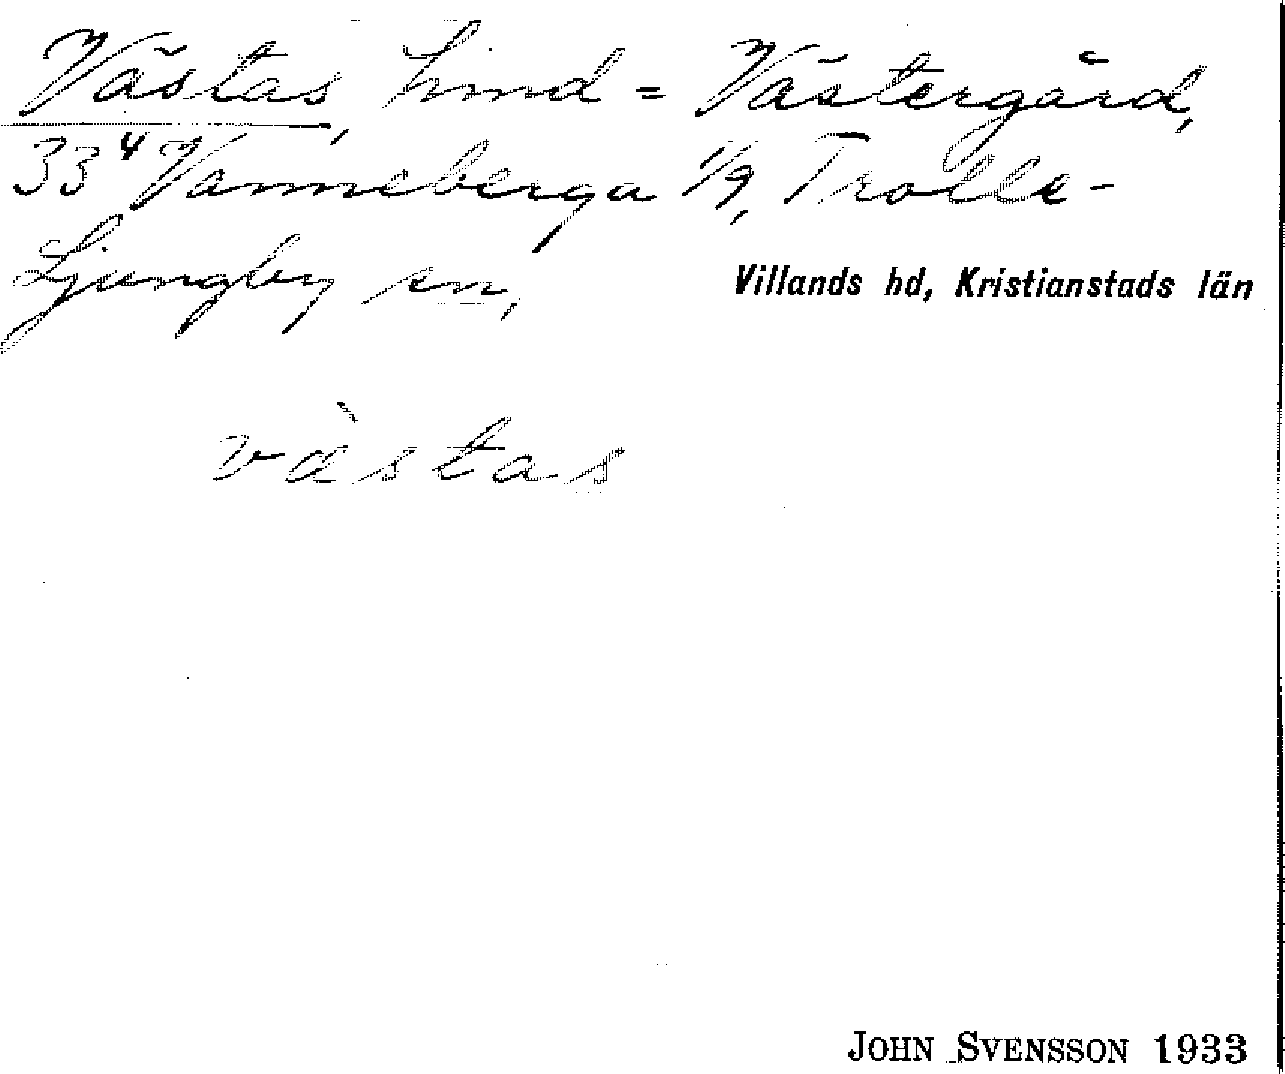 Västas, hmd = Västergård,
33⁴ Vanneberga 1/9, Trolle-
Ljungby sn,
Villands hd, Kristianstads län
västas
JOHN SVENSSON 1933